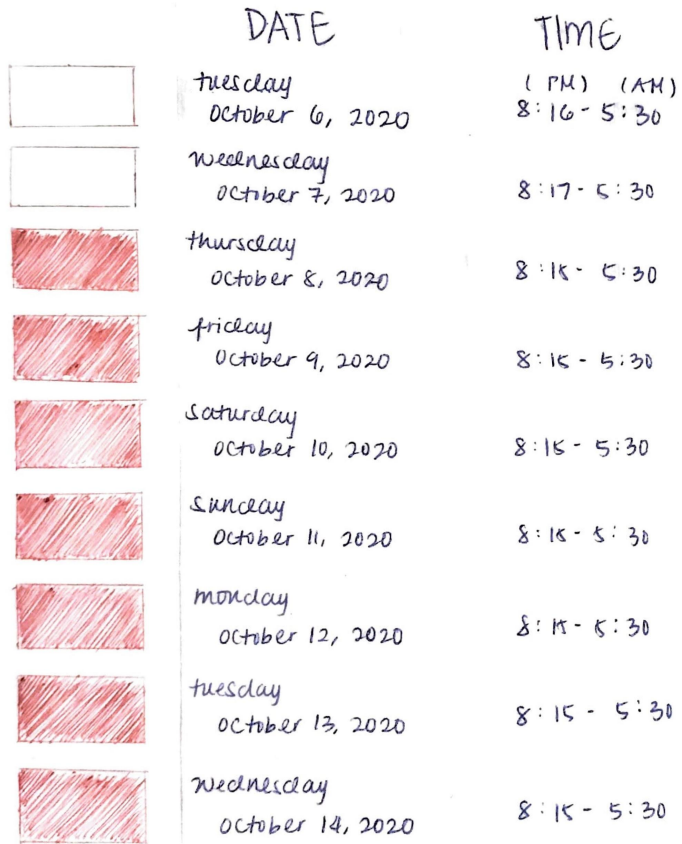 DATE TIME
tuesday (PM) (AM)
October 6, 2020 8:16 - 5:30
wednesday
October 7, 2020 8:17 - 5:30
thursday
October 8, 2020 8:15 - 5:30
friday
October 9, 2020 8:15 - 5:30
saturday
October 10, 2020 8:15 - 5:30
sunday
October 11, 2020 8:15 - 5:30
monday
October 12, 2020 8:15 - 5:30
tuesday
October 13, 2020 8:15 - 5:30
wednesday
October 14, 2020 8:15 - 5:30